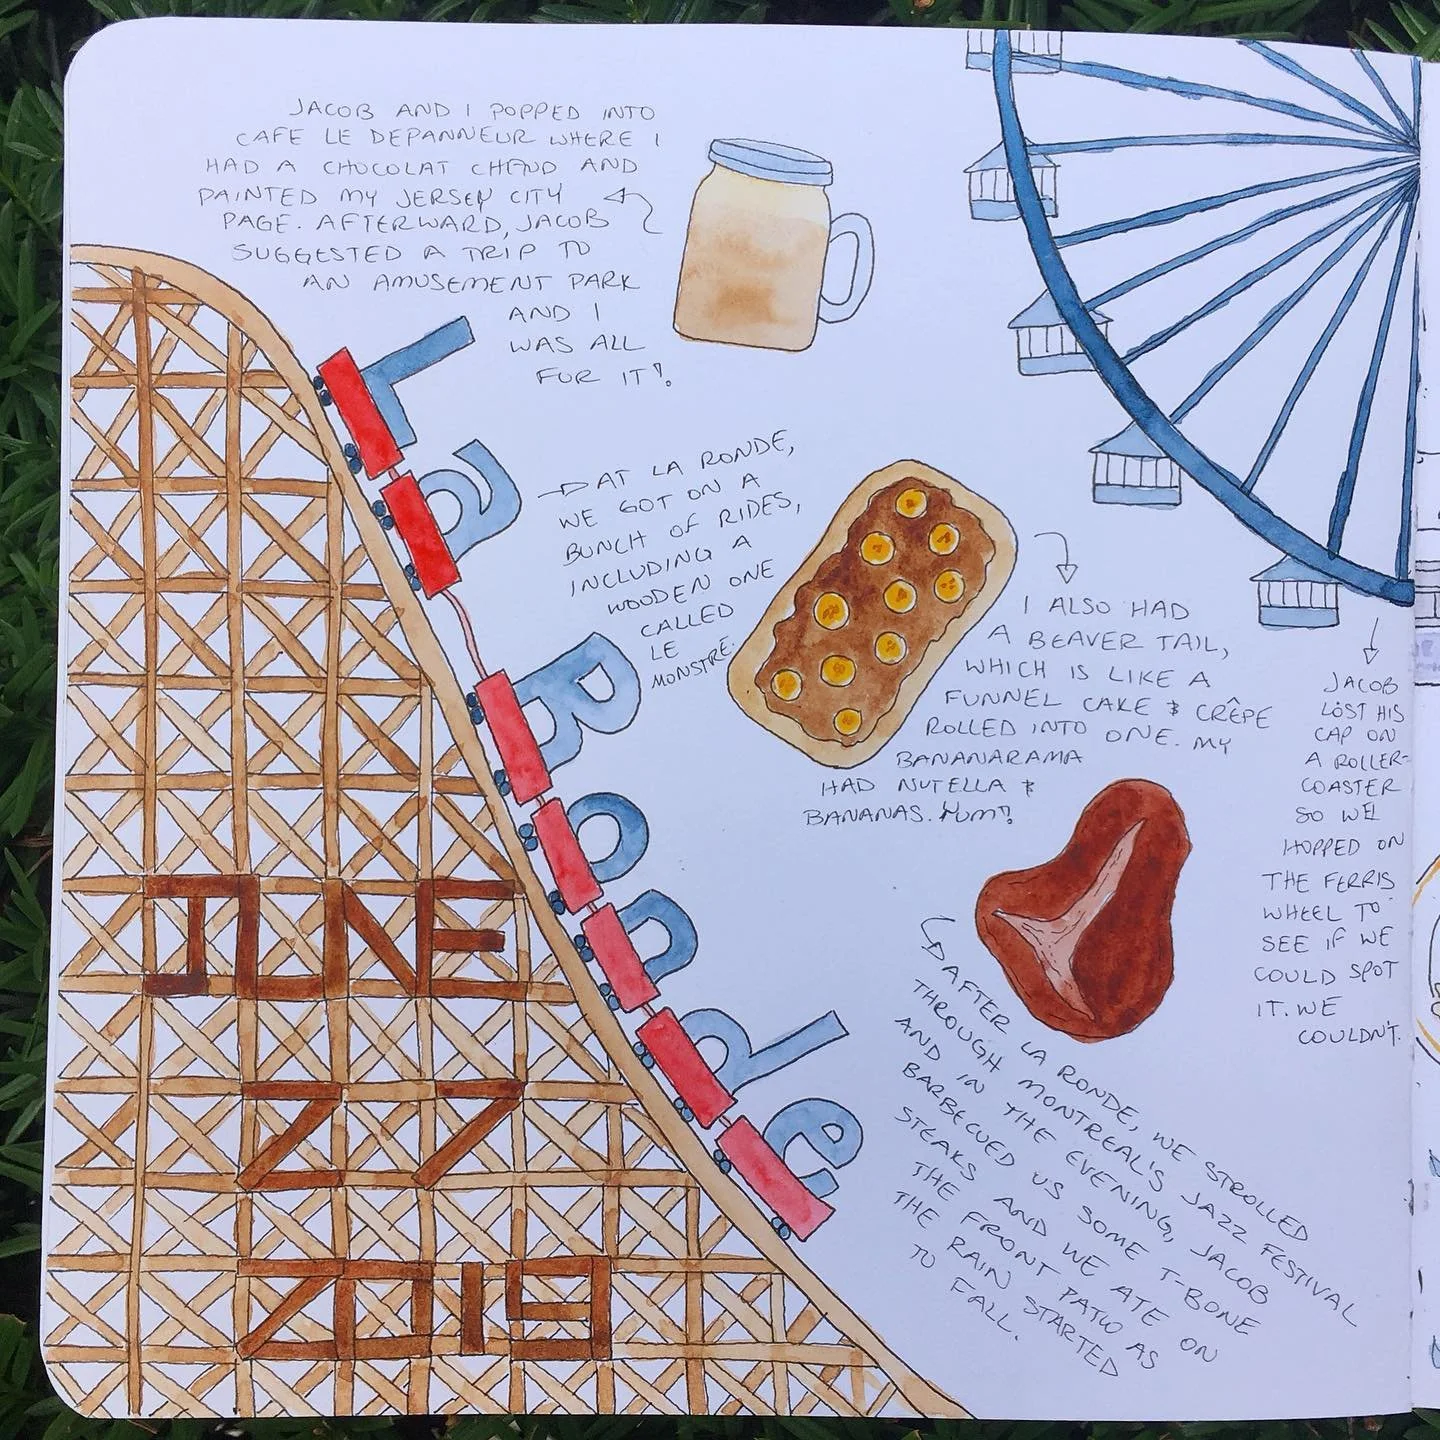 JACOB AND I POPPED INTO
CAFE LE DEPANNEUR WHERE I
HAD A CHOCOLAT CHAUD AND
PAINTED MY JERSEY CITY
PAGE. AFTERWARD, JACOB
SUGGESTED A TRIP TO
AN AMUSEMENT PARK
AND I
WAS ALL
FOR IT!
La Ronde
AT LA RONDE,
WE GOT ON A
BUNCH OF RIDES,
INCLUDING A
WOODEN ONE
CALLED
LE
MONSTRE.
I ALSO HAD
A BEAVER TAIL,
WHICH IS LIKE A
FUNNEL CAKE & CRÊPE
ROLLED INTO ONE. MY
BANANARAMA
HAD NUTELLA &
BANANAS. YUM!
JACOB
LOST HIS
CAP ON
A ROLLER-
COASTER
SO WE
HOPPED ON
THE FERRIS
WHEEL TO
SEE IF WE
COULD SPOT
IT. WE
COULDN'T.
AFTER LA RONDE, WE STROLLED
THROUGH MONTREAL'S JAZZ FESTIVAL
AND IN THE EVENING, JACOB
BARBECUED US SOME T-BONE
STEAKS AND WE ATE ON
THE FRONT PATIO AS
THE RAIN STARTED
TO FALL.
JUNE
27
2019